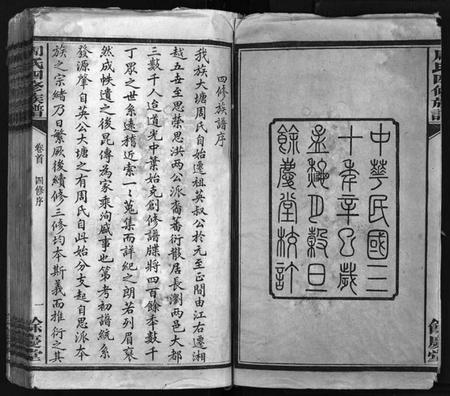 周氏四修族譜
餘慶堂
中華民國三
十年辛巳歲
孟秋月穀旦
餘慶堂校訂
四修族譜序
我族大塘周氏自始遷祖英叔公於元至正間由江右遷湘
越五世至思榮思洪兩公派裔蕃衍散居長瀏兩邑大都
三數千人迨道光中葉始克創修譜牒將四百餘年數千
丁眾之世系遠稽近索一一蒐集而詳紀之朗若列眉褎
然成帙遺之後昆傳為家乘洵盛事也第考初譜統系
發源肇自英公大塘之有周氏自此始分支起自思派本
族之宗緒乃日繁厥後續修三修均本斯義而推衍之其
周氏四修族譜
卷首 四修序
一
餘慶堂